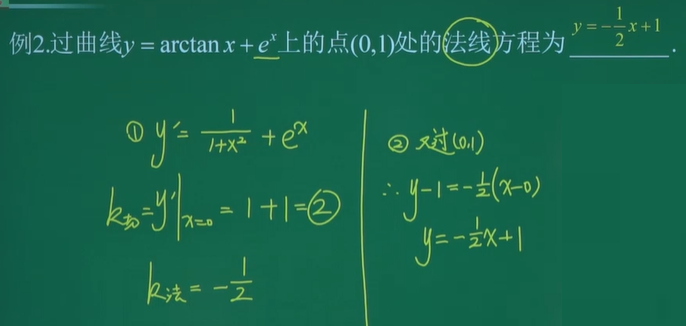 例2.过曲线y = arctan x + eˣ上的点(0,1)处的法线方程为 y = -\frac{1}{2}x+1 .
① y' = \frac{1}{1+x²} + eˣ
k切 = y'|ₓ₌₀ = 1+1 = ②
k法 = -\frac{1}{2}
② 又过(0,1)
∴ y-1 = -\frac{1}{2}(x-0)
y = -\frac{1}{2}x+1